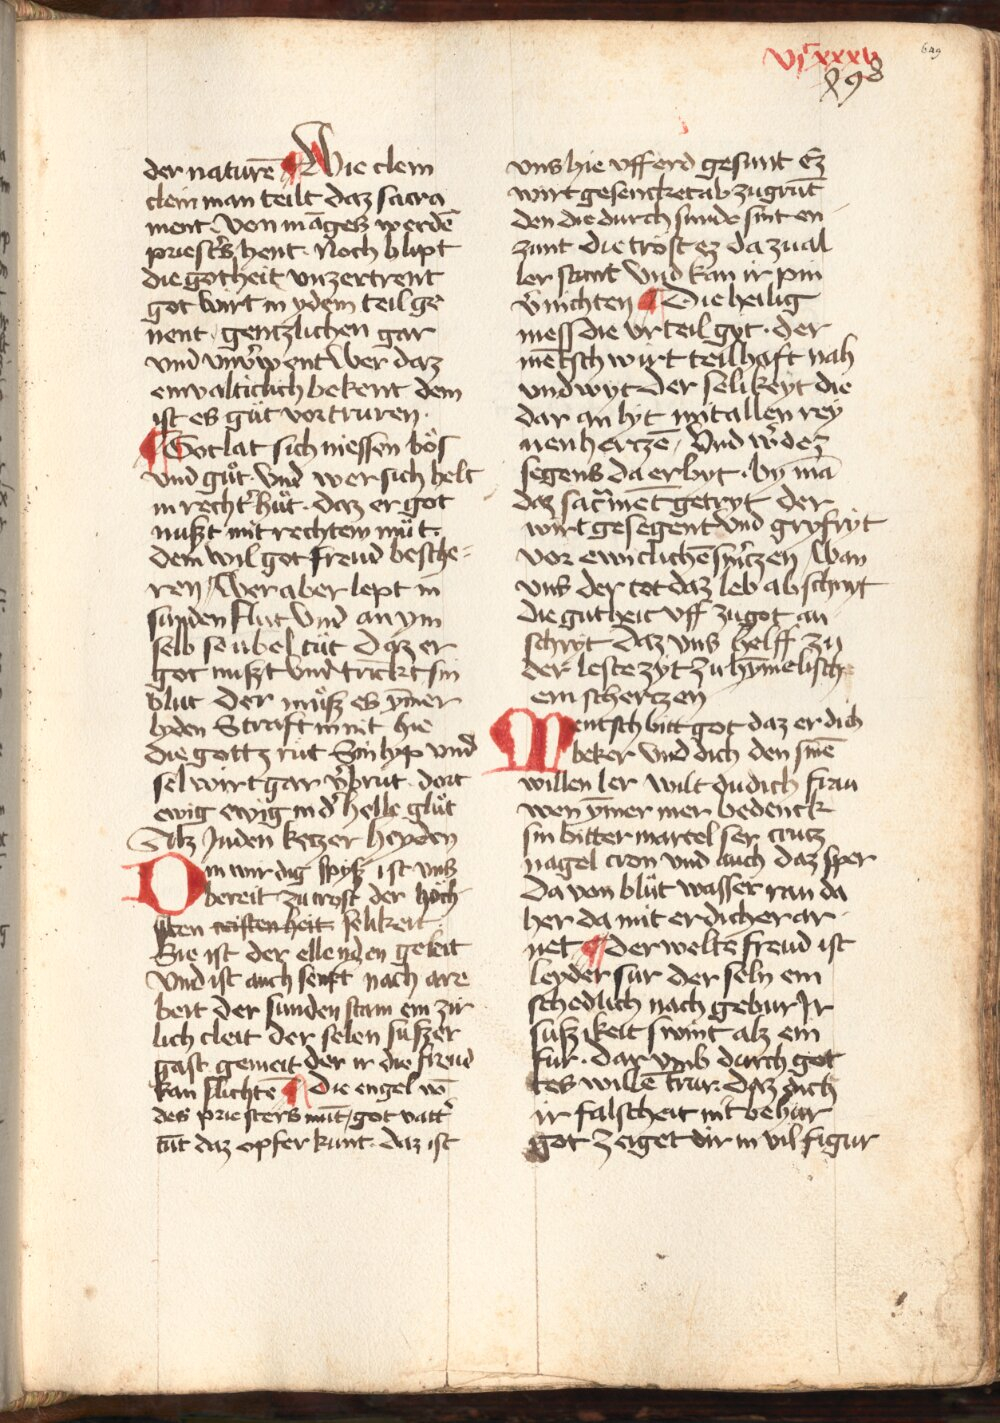 vjcxxxv
649
898
der naturē Wie clein
clein man teilt daz sacra
ment Von māges werdē
priesters hent · Noch blipt
die gotheit vnzertrent
got wirt in ydem teil ge
nent gentzlichen gar
vnd vnv̄went Wer daz
einvalticlich bekent dem
ist es gůt vor truren ·
Got lat sich niessen bös
vnd gůt · Vnd wer sich helt
in recht̄ hůt · daz er got
nuszt mit rechtem můt ·
dem wil got freud besche=
ren / Wer aber lept in
sunden flut Vnd an ym
selb se übel tůt daz er
got nuszt vnd trinckt sin
blut der můsz es ymer
lyden Straft in nit hie
die gottz rut Sin lyp vnd
sel wirt gar v̄brut · dort
ewig ewig in d̄ helle glůt
Alz Juden ketzer heyden
Din wirdig spysz ist vns
bereit · zu trost der höch
sten cristenheit selikeit
Sie ist der ellenden geleit
Vnd ist auch senft nach are
beit der sunden stam ein zir
lich cleit der selen suszer
gast gemeit der ir die freud
kan slichtē Die engel vō
des priesters mūt / got vatt̄
tůt daz opfer kunt · daz ist
vns hie vff erd gesunt Ez
wirt gesencket ab zu grūt
den die durch sunde sint en
zunt die tröst ez da zu al
ler stunt Vnd kan ir pin
v̄nichten Die heilig
mess die vrteil got · der
mētsch wirt teilhaft nah
vnd wyt der selikeyt die
dar an lyt mit allen rey
nen hertzē / Vnd w̄dez
segens da erbyt · by mā
daz sacr̄mēt getryt der
wirt gesegent vnd gryfryt
vor ewiclichē sm̄tzen Wan
vns der tot daz leb ab schnyt
die gutheit vff zu got an
schryt daz vns helff zu
der leste zyt zu hȳmelisch
em schertzen
Mentsch bitt got daz er dich
beker vnd dich den sinē
willen ler wilt du dich frau
wen ȳmer mer bedenck
sin bitter martel ser crutz
nagel cron vnd auch daz sper
da von blůt wasser ran da
her da mit er dich er ar
net Der welte freud ist
leyder sur der seln ein
schedlich nach gebur Ir
susz ikeit swint alz ein
für · dar vmb durch got
tes willē trur daz dich
ir falscheit nit behar
got zeiget dir in vil figur